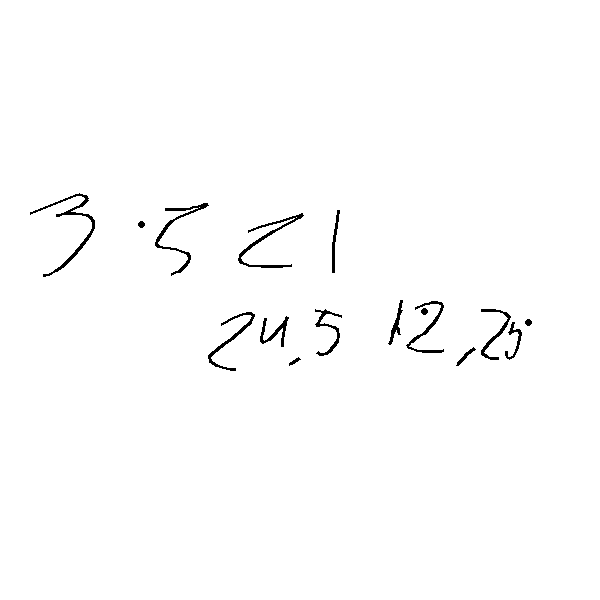 3 · 5 21
24,5 12,25